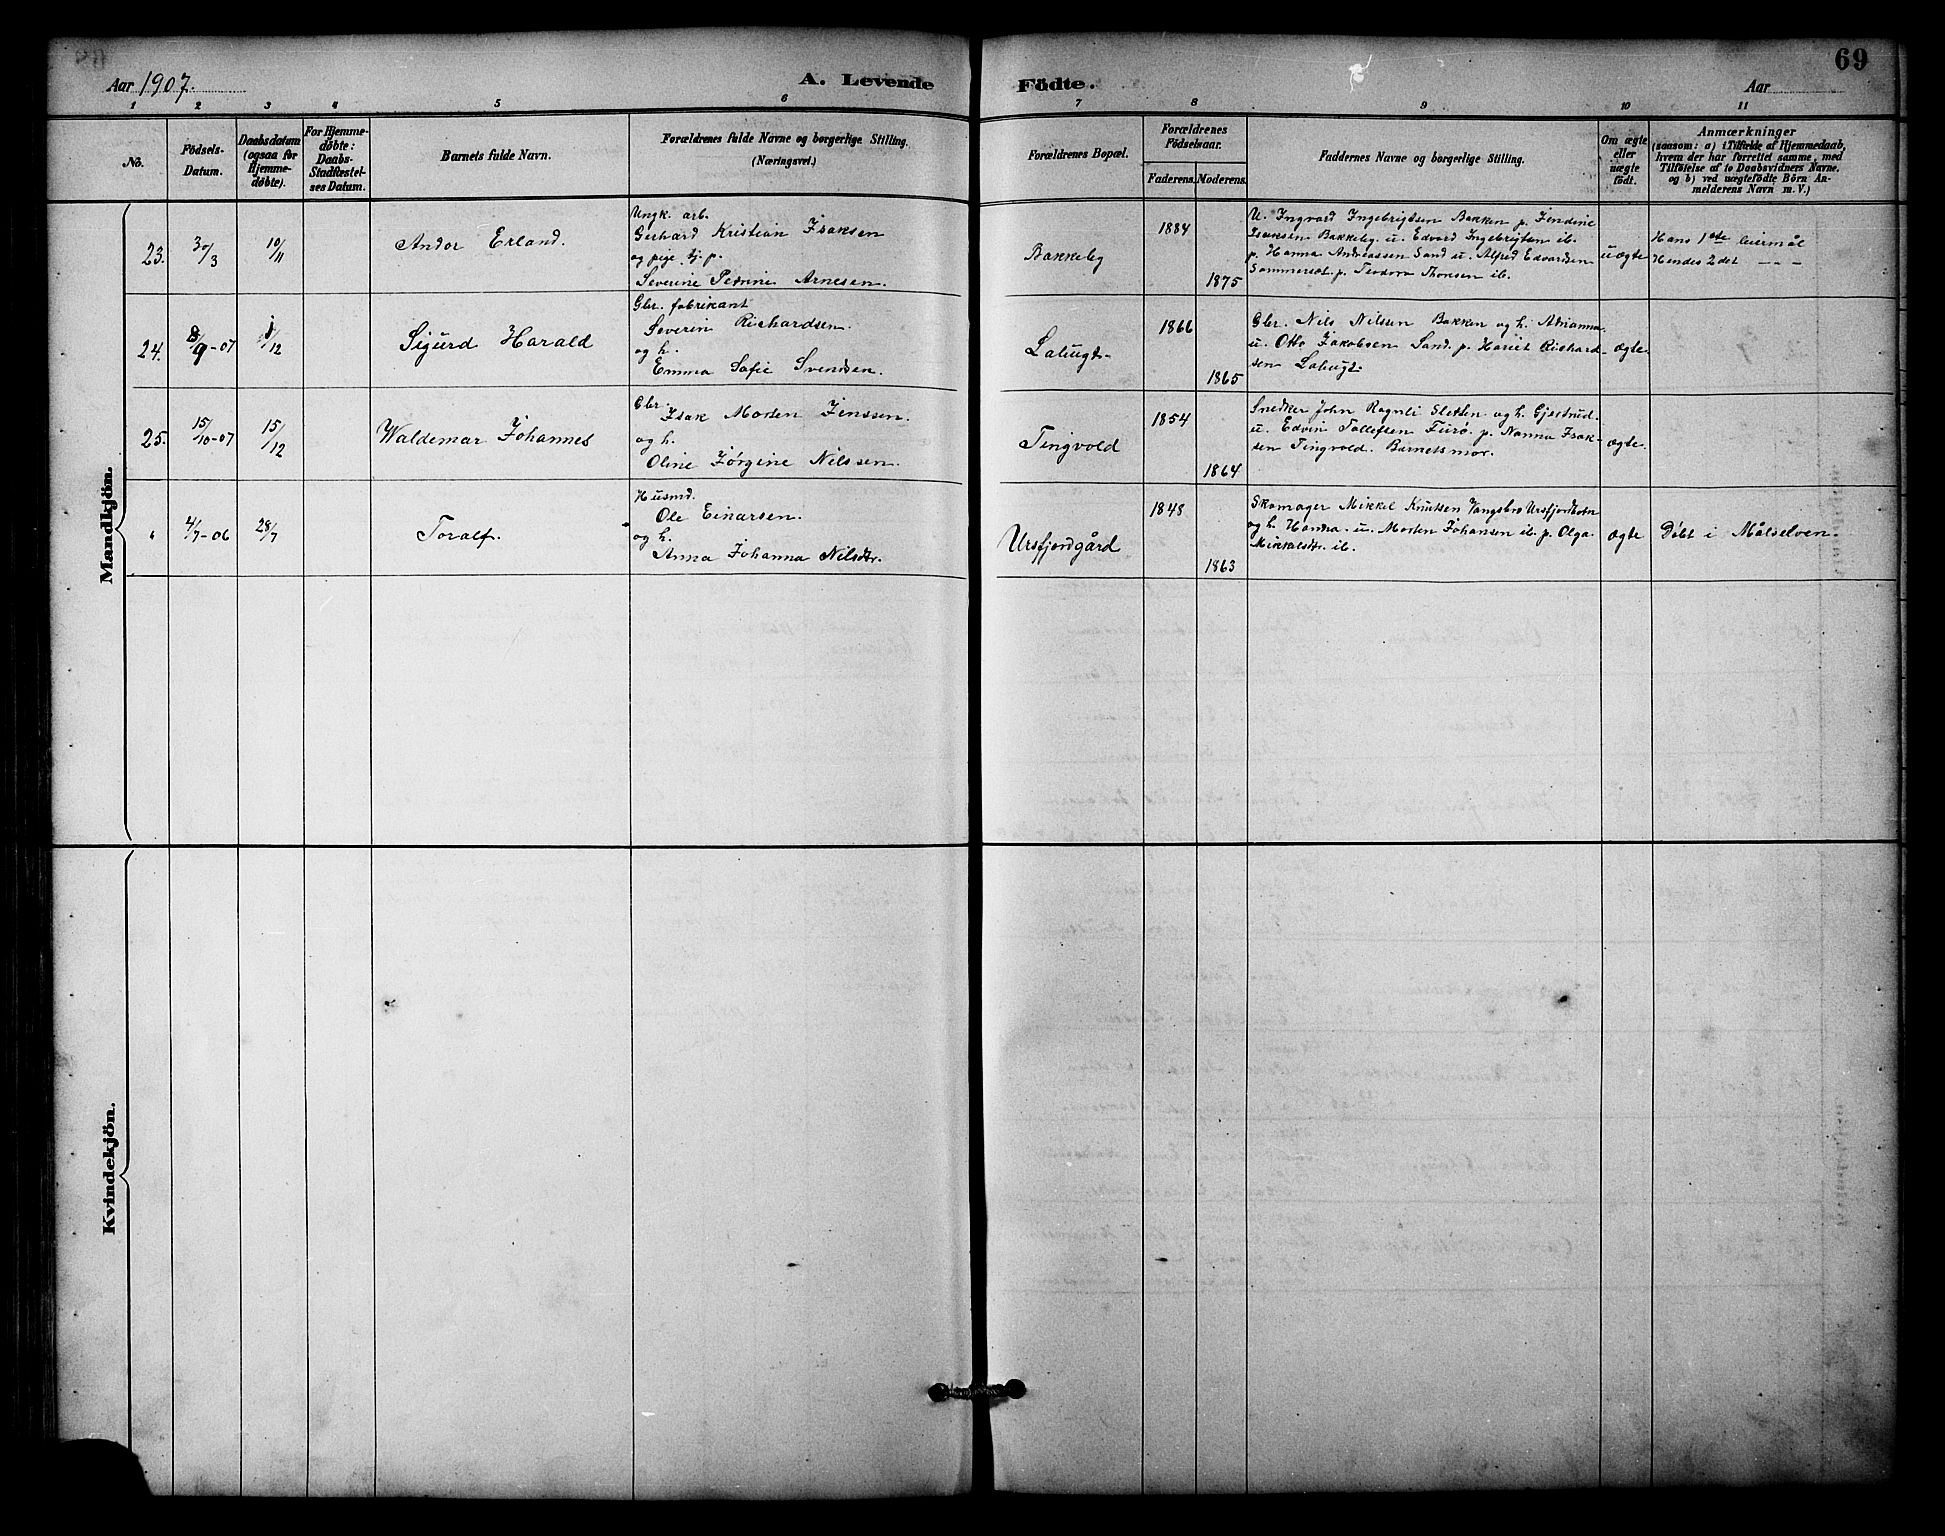 69
Aar 1907.
A. Levende Födte.
Aar
1 2 3 4 5 6 7 8 9 10 11
No.
Födsels-Datum.
Daabsdatum (ogsaa for Hjemmedøbte).
For Hjemmedøbte: Daabs-Stadfæstelses Datum.
Barnets fulde Navn.
Forældrenes fulde Navne og borgerlige Stilling.
(Næringsvei.)
Forældrenes Bopæl.
Forældrenes Fødselsaar.
Faderens. Moderens.
Faddernes Navne og borgerlige Stilling.
Om ægte eller uægte født.
Anmærkninger
(saasom: a) i Tilfælde af Hjemmedaab,
hvem der har forrettet samme, med
Tilføielse af to Daabsvidners Navne,
og b) ved uægtefødte Börn An-
melderens Navn m. V.)
Mandkjön.
23.
30/3
10/11
Andor Erland.
Ungk. arb.
Gerhard Kristian Isaksen
og pige tj. p.
Severine Petrine Arnesen.
Bakkeby
1884
1875
U. Ingvard Ingebrigtsen Bakken p. Jendine
Isaksen Bakkeby u. Edvard Ingebrigtsen ib.
p. Hanna Andreassen Sand u. Alfred Edvardsen
Sommersæt p. Teodora ib.
uægte
Hans 1ste leiermål
Hendes 2det — — —
24.
8/9-07
1/12
Sigurd Harald
Gbr. fabrikant
Severin Richardsen.
og h.
Emma Sofie Svendsen.
Labugt-
1866
1865
Gbr. Nils Nilsen Bakken og h. Adrianna
u. Otto Jakobsen Sand. p. Hariet Richard-
sen Labugt.
ægte.
25.
15/10-07
15/12
Waldemar Johannes
Gbr.
Isak Morten Jenssen.
og h.
Oline Jørgine Nilssen.
Tingvold
1854
1864
Snedker John Rognli Sletten og h. Gjertrud.
u. Edvin Tollefsen Furø. p. Nanna Isak-
sen Tingvold. Barnets mor.
ægte.
"
4/7-06
28/7
Toralf.
Husmd.
Ole Einarsen.
og h.
Anna Johanna Nilsdtr.
Ursfjordgård
1848
1863
Skomager Mikkel Knutsen Vangsbro Ursfjordbotn
og h. Handra u. Morten Johansen ib. p. Olga
Mikkelsdtr. ib.
ægte
Døbt i Målselven.
Kvindekjön.